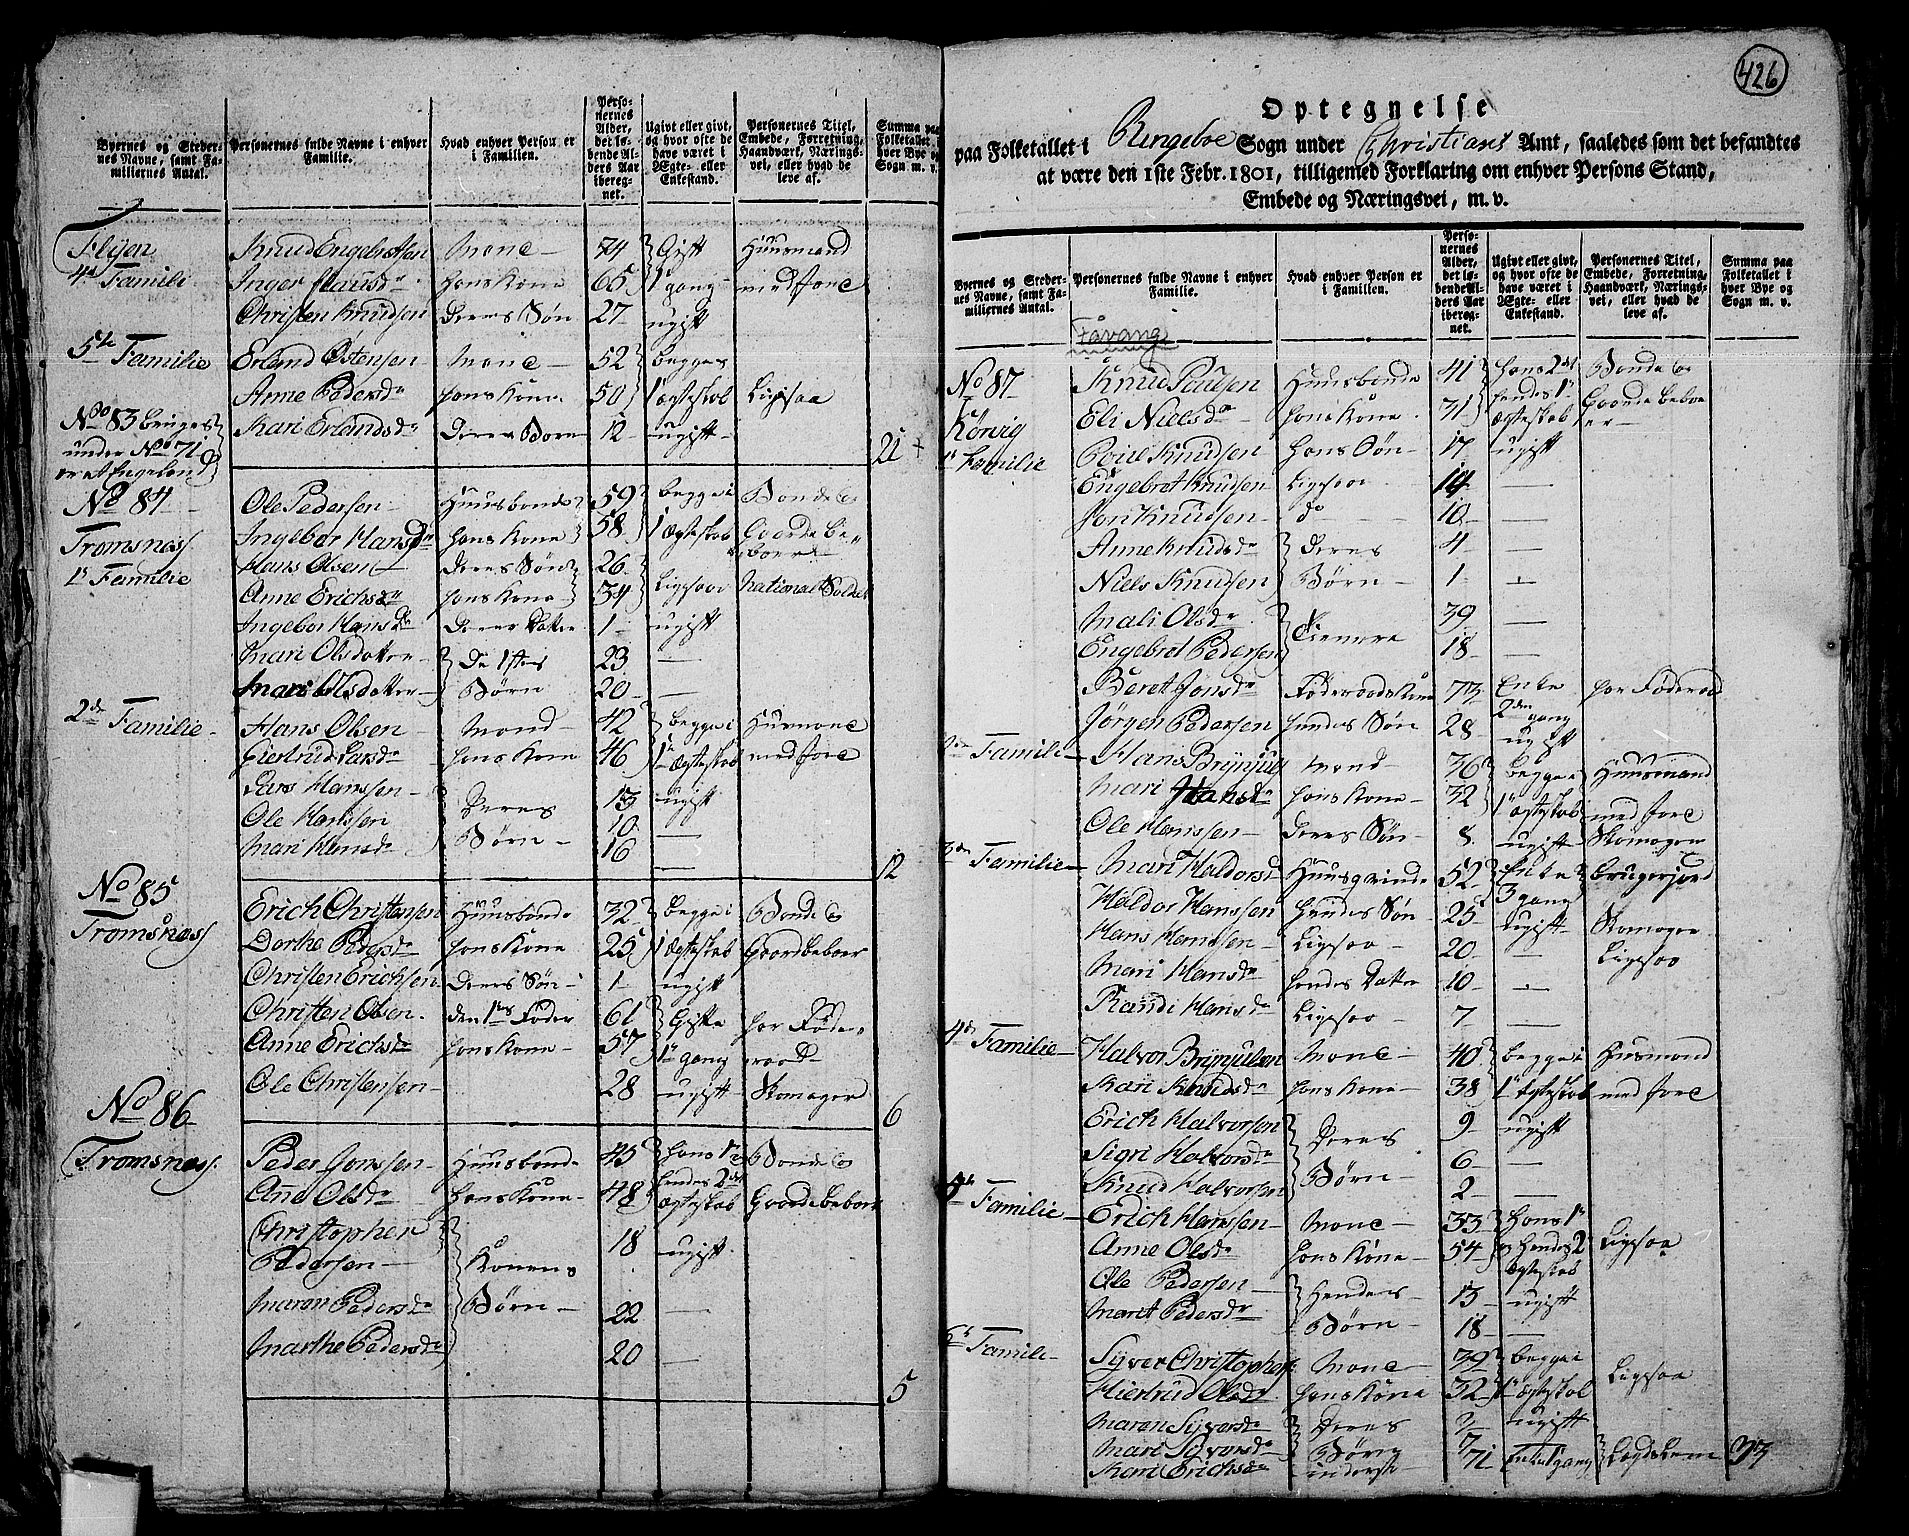 426
Byernes og Stedernes Navne, samt Familiernes Antal.
Personernes fulde Navne i enhver Familie.
Hvad enhver Person er i Familien.
Personernes Alder, det løbende Alders Aar iberegnet.
Ugivt eller givt, og hvor ofte de have været i Ægte- eller Enkestand.
Personernes Titel, Embede, Forretning, Haandværk, Næringsvei, eller hvad de leve af.
Summa paa Folketallet i hver Bye og Sogn m. v.
Flijen Knud Engebretsen Mand 74 Gift Huusmand
4de Famili Inger Clausdr hans Kone 65 1 gang med Jord
Christen Knudsen Deres Søn 27 ugift
5te Familie Erland Østensen Mand 52 begge i
Anne Pedersdr hans Kone 50 1t ægteskab Ligesaa
No 83 bruges Kari Erlandsdr Deres Barn 12 ugift
under No 71
21
No 84 Ole Pedersen Huusbonde 59 begge i Bonde og
Tromsnæss Ingebor Hansdr hans Kone 58 1 ægteskab Gaardebeboere
1t Familie Hans Olsen Deres Søn 26
Anne Erichsdr hans Kone 34 Ligesaa national Soldat
Ingebor Hansdr Deres Datter 1 ugift
Mari Olsdatter De 1stes 23
Mari Olsdatter Børn 20
2de Familie Hans Olsen Mand 42 begge i Husmand
Giertrud Larsdr hans Kone 46 1t ægteskab med Jord
Lars Hanssen Deres 13 ugift
Ole Hanssen Børn 10
Mari Hansdr 16
12
No 85 Erich Christensen Huusbonde 32 begge i Bonde og
Tromsnæss Dorthe Pedersdr hans Kone 25 1 ægteskab Gaardbeboer
Christen Erichsen Deres Søn 1 ugift
Christen Olsen den 1stes Fader 61 Gifte har Føderaad
Anne Erichsdr hans Kone 57 1 gang
Ole Christensen 28 ugift Skomager
6
No 86
Tromsnæss Peder Jonssen Huusbonde 45 hans 1te Bonde og
Anne Olsdr hans Kone 48 hendes 2det ægteskab Gaardebeboer
Christopher
Pedersen Konens 18 ugift
Maren Pedersdr Børn 22
Marthe Pedersdr 20
5
Optegnelse
paa Folketallet i Ringeboe Sogn under Christians Amt, saaledes som det befandtes
at være den 1ste Febr. 1801, tilligemed Forklaring om enhver Persons Stand,
Embede og Næringsvei, m. v.
Byernes og Stedernes Navne, samt Familiernes Antal.
Personernes fulde Navne i enhver Familie.
Hvad enhver Person er i Familien.
Personernes Alder, det løbende Alders Aar iberegnet.
Ugivt eller givt, og hvor ofte de have været i Ægte- eller Enkestand.
Personernes Titel, Embede, Forretning, Haandværk, Næringsvei, eller hvad de leve af.
Summa paa Folketallet i hver Bye og Sogn m. v.
Fåvang
No 87 Knud Poulsen Huusbonde 41 hans 2det Bonde og
Kørvig Eli Nielsdr hans Kone 31 hendes 1t ægteskab Gaardebeboer
1t Familie Poul Knudsen hans Søn 17 ugift
Engebret Knudsen Ligesaa 14
Jon Knudsen do 10
Anne Knudsdr Deres 4
Niels Knudsen Børn 1
Mali Olsdr Tienere 39
Engebret Pedersen 18
Beret Jonsdr Føderaadskone 73 Enke 2den gang har Føderaad
Jørgen Pedersen hendes Søn 28 ugift
2de Familie Hans Brynjuls Mand 36 begge i Huusmand
Mari Hansdr hans Kone 32 1t ægteskab med Jord
Ole Hanssen Deres Søn 8 ugift Skomager
3de Familie Mari Haldorsdr Huusqvinde 52 Enke 3 gang bruger Jord
Haldor Hanssen hendes Søn 25 ugift Skomager
Hans Hanssen Ligesaa 20 Ligesaa
Mari Hansdr hendes Datter 10
Randi Hansdr Ligesaa 7
4de Familie Halvor Brynjulsen Mand 40 begge i Husmand
Kari Knudsdr hans Kone 38 1t ægteskab med Jord
Erich Halvorsen Deres 9 ugift
Sigri Halvorsdr Børn 6
Knud Halvorsen 2
5te Familie Erich Hanssen Mand 33 hans 1t
Anne Olsdr hans Kone 54 og hendes 2 ægteskab Ligesaa
Ole Pedersen Hendes 13 ugift
Maret Pedersdr Børn 18
6te Famili Syver Christophers Mand 39 begge i Ligesaa
Hiertrud Olsdr hans Kone 32 1t ægteskab
Maren Syversdr Deres ugift
Mari Syversdr Børn 7
Kari Erichsdr inderst 71 Enke 1 gang Lægdslem 33